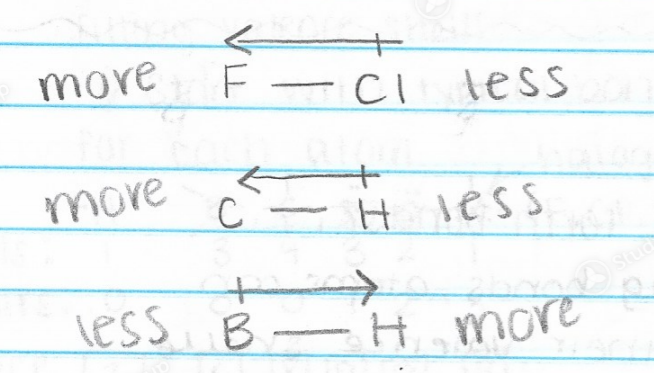 more F — Cl less
more C — H less
less B — H more